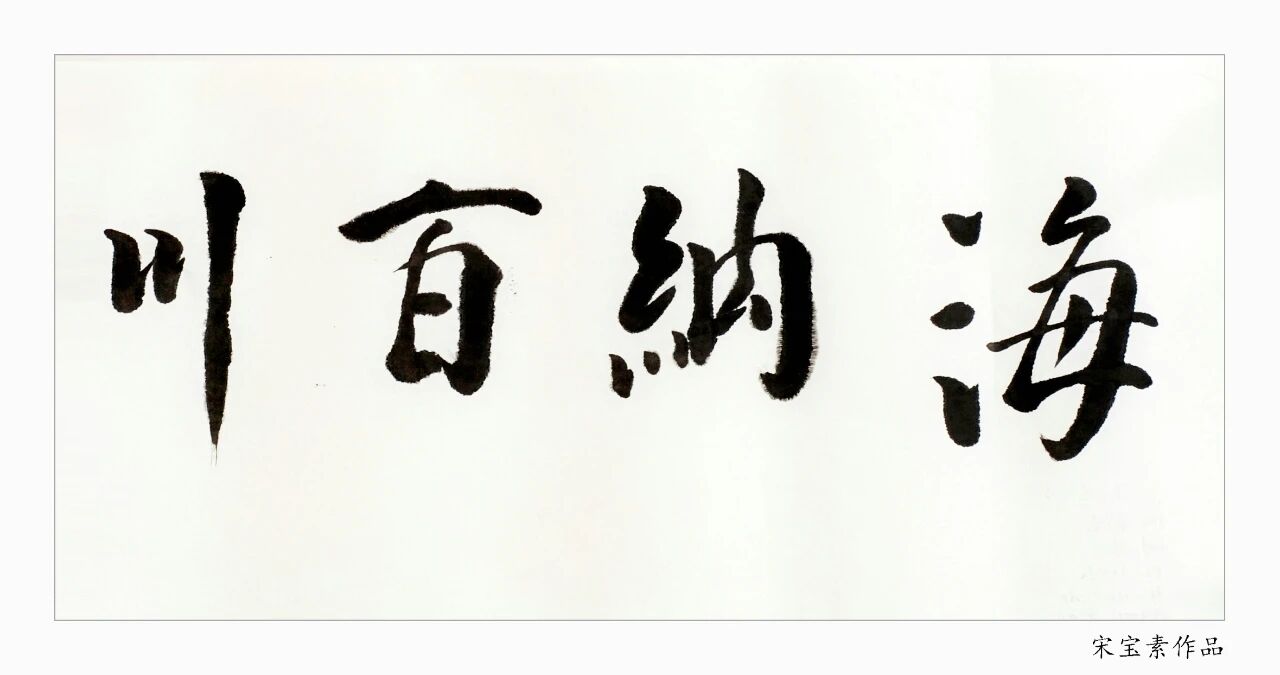 海納百川
宋宝素作品